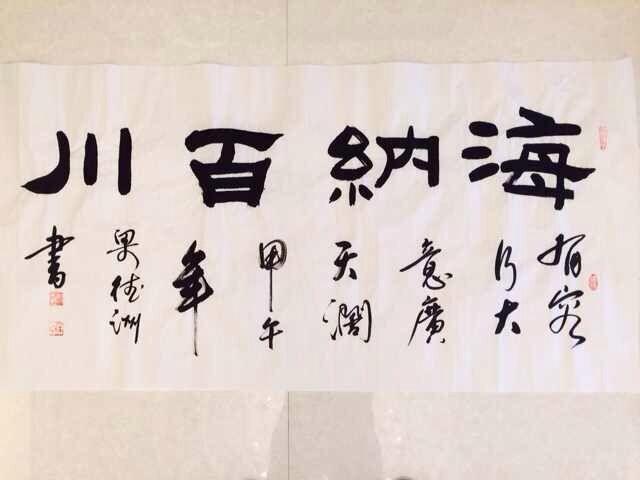 海納百川
有容
乃大
意廣
天濶
甲午
年
德洲
書